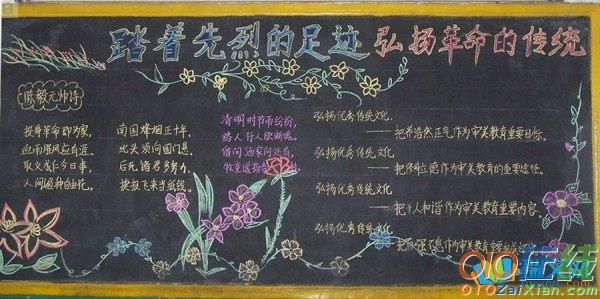 踏着先烈的足迹 弘扬革命的传统
陈毅元帅诗
投身革命即为家，
血雨腥风应有涯。
取义成仁今日事，
人间遍种自由花。
南国烽烟正十年，
此头须向国门悬。
后死诸君多努力，
捷报飞来当纸钱。
清明时节雨纷纷，
路上行人欲断魂。
借问酒家何处有
牧童遥指
弘扬优秀传统文化，
——把养浩然正气作为审美教育重要目标。
弘扬优秀传统文化，
——把修身立德作为审美教育的重要途径。
弘扬优秀传统文化
——把天人和谐作为审美教育重要内容。
弘扬优秀传统文化
——把自强不息作为审美教育重要
OIOZaiXian.com